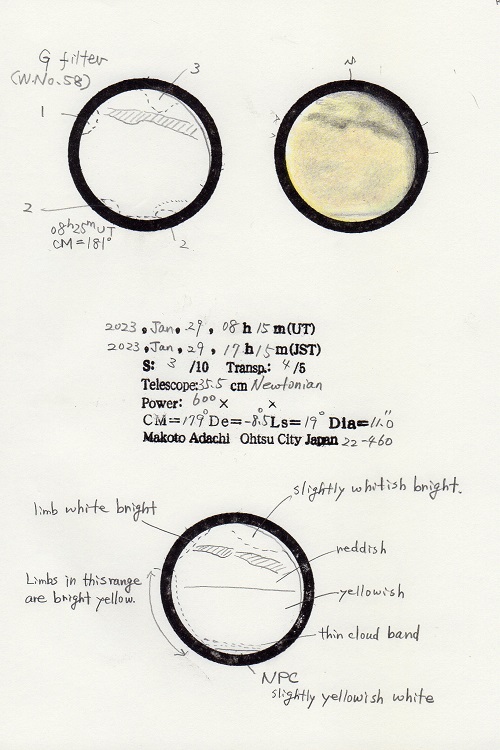 G filter
(W.No.58)
3
1
2
08h25mUT
CM=181°
2
2023, Jan, 29, 08h15m(UT)
2023, Jan, 29, 17h15m(JST)
S: 3 /10 Transp.: 4/5
Telescope:35.5 cm Newtonian
Power: 600× ×
CM=179° De=-8.5° Ls=19° Dia=11.0"
Makoto Adachi Ohtsu City Japan 22-460
slightly whitish bright.
limb white bright
reddish
Limbs in this range
are bright yellow.
yellowish
thin cloud band
NPC
slightly yellowish white